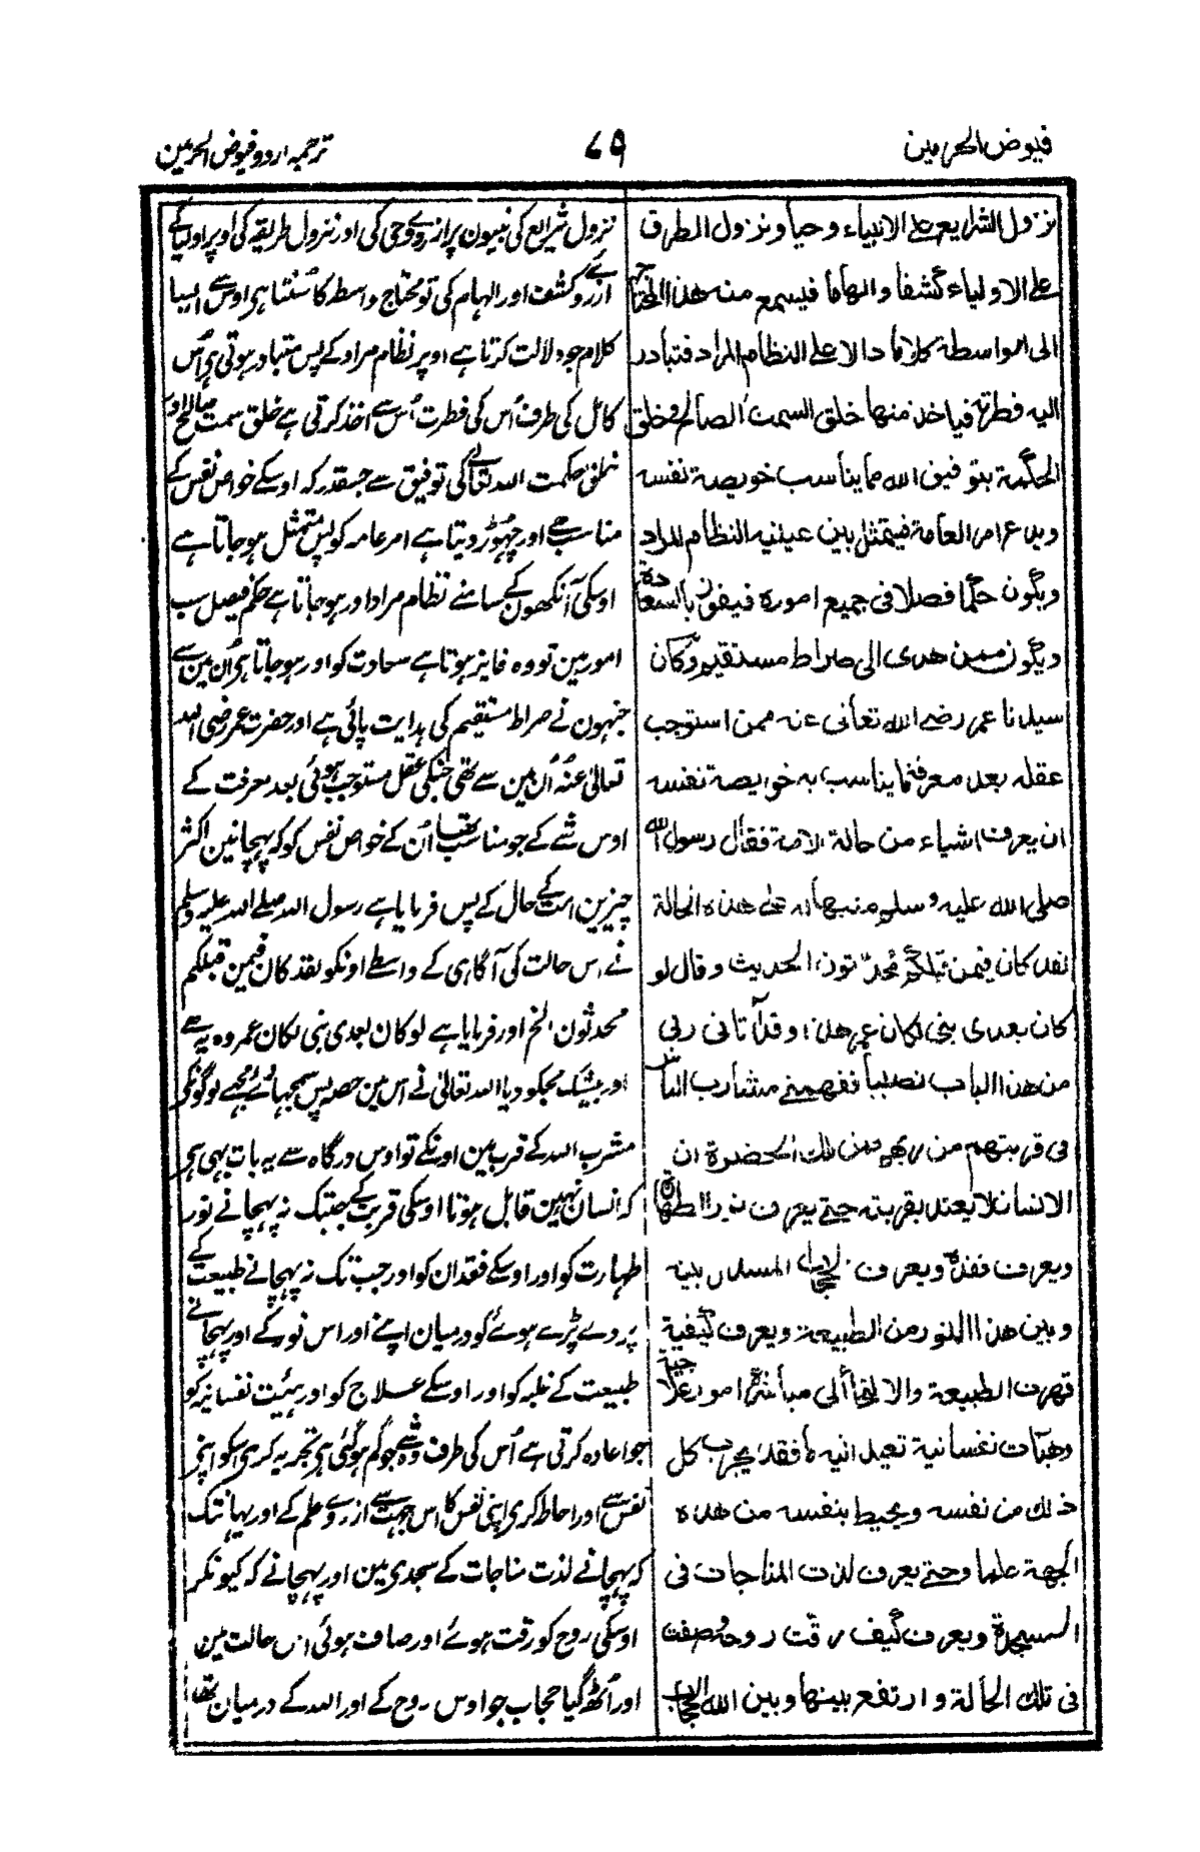 فیوض الحرمین
۷۹
ترجمہ اردو فیوض الحرمین
نزول الشرایع علی الانبیاء وحیا ونزول الطرق
علی الاولیاء کشفا والهاما فیسمع من هذا المحتاج
الی الواسطة کلاما دالا علی النظام المراد فتبادر
الیه فطرته فیاخذ منها خلق السمت الصالح وخلق
الحکمة بتوفیق الله مما یناسب خویصة نفسه
ویدع امر العامة فیتمثل بین عینیه النظام المراد
ویکون حکما فصلا فی جمیع اموره فیفوز بالسعادة
ویکون ممن هدی الی صراط مستقیم وکان
سیدنا عمر رضی الله تعالی عنه ممن استوجب
عقله بعد معرفة ما یناسب به خویصة نفسه
ان یعرف اشیاء من حالة الامة فقال رسول الله
صلی الله علیه وسلم منبها له علی هذه الحالة
لقد کان فیمن قبلکم محدثون الحدیث وقال لو
کان بعدی نبی لکان عمر هذا وقد آتانی ربی
من هذا الباب نصیبا ففهمنی مشارب الناس
فی قربتهم من ربهم فمن تلک الحضرة ان
الانسان لا یعتد بقربته حتی یعرف نور الطهارة
ویعرف فقده ویعرف الحجاب المسدل بینه
وبین هذا النور من الطبیعة ویعرف کیفیة
قهرت الطبیعة والالتجا الی مباشرة امور علاجیة
وهیآت نفسانیة تعید الیه ما فقد یجرب کل
ذلک من نفسه ویحیط بنفسه من هذه
الجهة علما وحتی یعرف لذت المناجات فی
السجدة ویعرف کیف رقت روحه وصفت
فی تلک الحالة وارتفع بینها وبین الله الحجاب
نزول شرایع کی نبیون پر ازروے وحی کی اور نزول طریقے کی اوپر اولیا کے
ازروے کشف اور الہام کی تو محتاج واسطہ کا سُنتا ہی اوس سے ایسا
کلام جو دلالت کرتا ہے اوپر نظام مراد کے پس متبادر ہوتی ہی اُس
کامل کی طرف اُس کی فطرت اُس سے اخذ کرتی ہے خلق سمت صالح اور
خلق حکمت اللہ تعالے کی توفیق سے جسقدر کہ اوسکے خواص نفس کے
مناسب ہے اور چھوڑ دیتا ہے امر عامہ کو پس متمثل ہو جاتا ہے
اوسکی آنکھون کے سامنے نظام مراد اور ہو جاتا ہے حکم فیصل سب
امور مین تو وہ فایز ہوتا ہے سعادت کو اور ہو جاتا ہی اُن مین سے
جنہون نے صراط مستقیم کی ہدایت پائی ہے اور حضرت عمر رضی اللہ
تعالی عنہ اُن مین سے تھی جنکی عقل مستوجب ہوئی بعد معرفت کے
اوس شے کے جو مناسب تھا اُن کے خواص نفس کو کہ پہچانین اکثر
چیزین امت کے حال کے پس فرمایا ہے رسول اللہ صلے اللہ علیہ وسلم
نے اس حالت کی آگاہی کے واسطے اونکو لقد کان فیمن قبلکم
محدثون الخ اور فرمایا ہے لو کان بعدی نبی لکان عمر وہ یہ ہے
اور بیشک مجکو دیا اللہ تعالی نے اس مین حصہ پس سمجھائے مجھے لوگونکے
مشرب اللہ کے قرب مین اونکے تو اوس درگاہ سے یہ بات بہی ہی
کہ انسان نہین قابل ہوتا اوسکی قربت کے جبتک نہ پہچانے نور
طہارت کو اور اوسکے فقدان کو اور جب تک نہ پہچانے طبیعت کے
پردے پڑے ہوئے کو درمیان اپنے اور اس نور کے اور پہچانے
طبیعت کے غلبہ کو اور اوسکے علاج کو اور ہیئت نفسانیہ کو
جو اعادہ کرتی ہے اُس کی طرف وہ شے جو گم ہو گئی ہی تجربہ کری اسکو اپنی
نفس سے اور احاطہ کری اپنی نفس کا اس جہت سے ازروے علم کے اور یہانتک
کہ پہچانے لذت مناجات کے سجدی مین اور پہچانے کہ کیونکر
اوسکی روح کو رقت ہوئے اور صاف ہوئی اس حالت مین
اور اُٹھ گیا حجاب جو اوس روح کے اور اللہ کے درمیان تھا